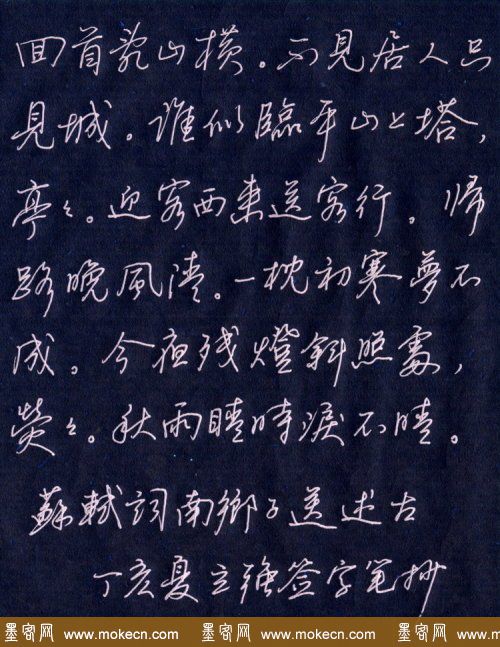 回首乱山横。不見居人只
見城。谁似臨平山上塔，
亭々。迎客西来送客行。帰
路晚風清。一枕初寒夢不
成。今夜残燈斜照處，
熒々。秋雨晴時淚不晴。
蘇軾詞南鄉子送述古
丁亥夏立強签字笔抄
墨客网 www.mokecn.com 墨客网 www.mokecn.com 墨客网 www.mo